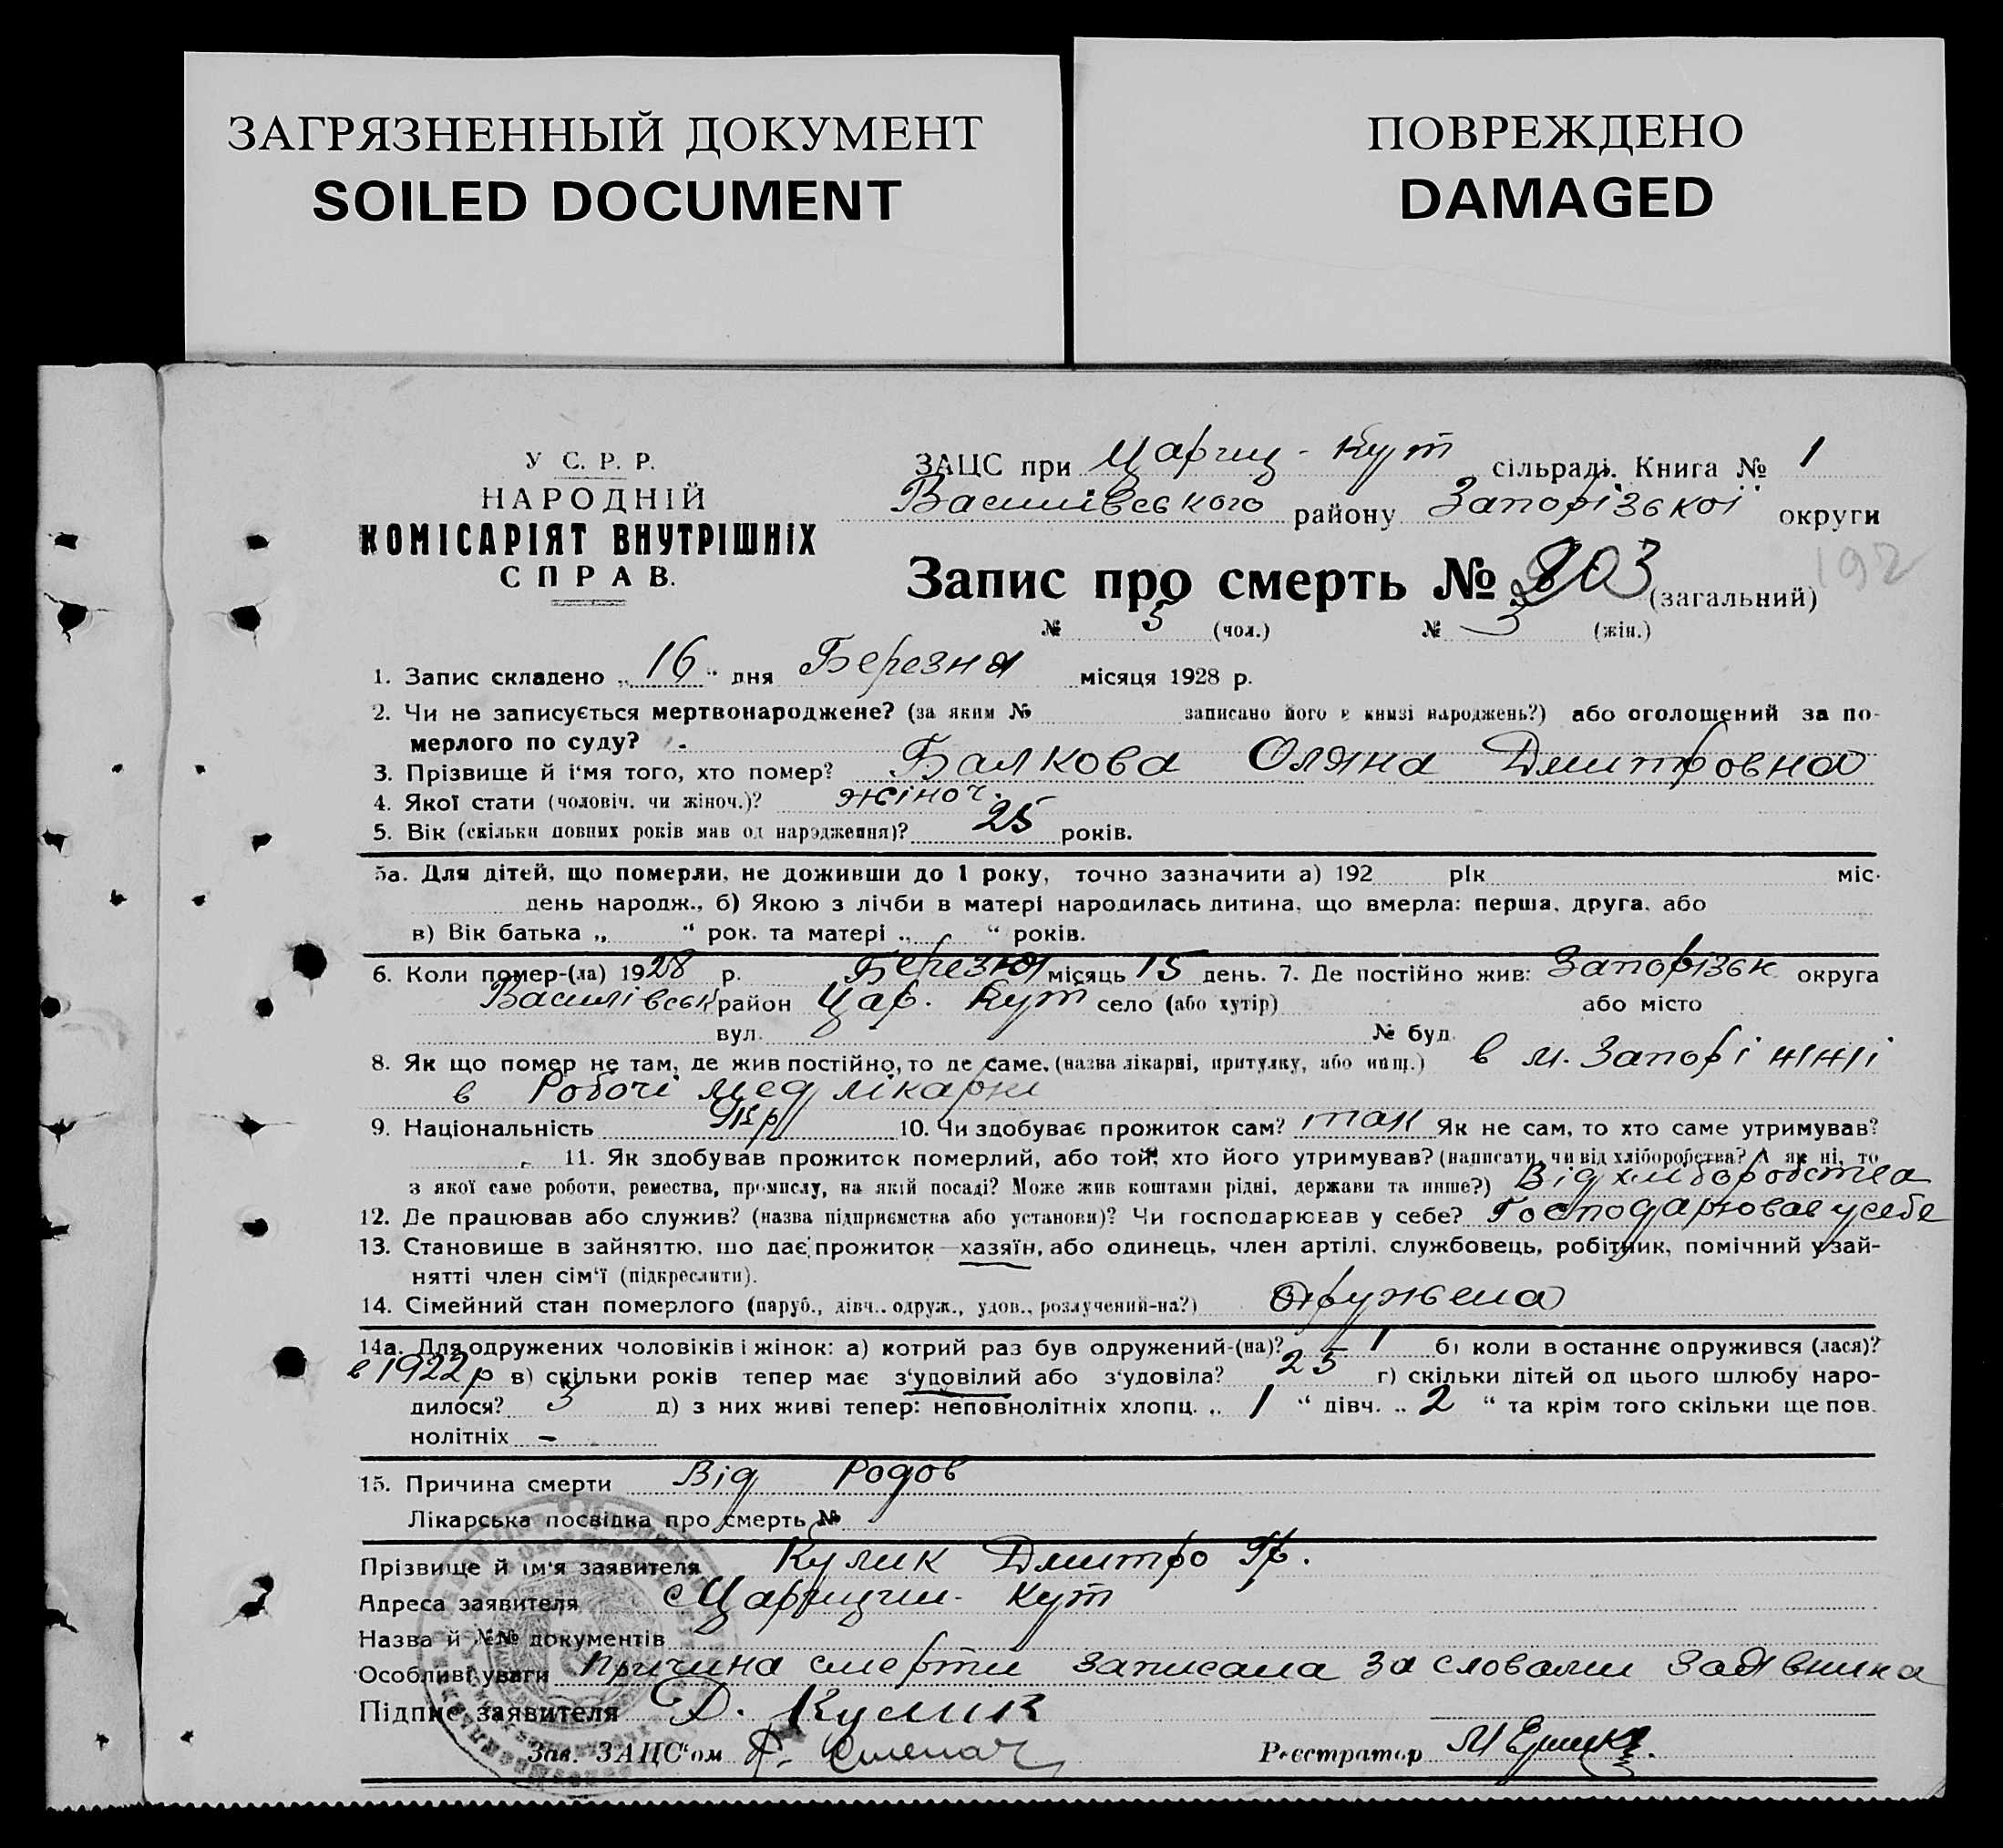 ЗАГРЯЗНЕННЫЙ ДОКУМЕНТ
SOILED DOCUMENT
ПОВРЕЖДЕНО
DAMAGED
У С. Р. Р.
НАРОДНІЙ
КОМІСАРІЯТ ВНУТРІШНІХ
СПРАВ.
ЗАЦС при Цариц-Кут сільраді. Книга № 1
Василівського району Запорізької округи
Запис про смерть № 203 (загальний)
192
№ 5 (чол.) № 3 (жін.)
1. Запис складено „16“ дня Березня місяця 1928 р.
2. Чи не записується мертвонароджене? (за яким № записано його в книзі народжень?) або оголошений за по-
мерлого по суду? -
3. Прізвище й і'мя того, хто помер? Балкова Оляна Дмитровна
4. Якої стати (чоловіч. чи жіноч.)? жіноч.
5. Вік (скільки повних років мав од народження)? 25 років.
5а. Для дітей, що померли, не доживши до 1 року, точно зазначити а) 192 рік міс.
день народж., б) Якою з лічби в матері народилась дитина, що вмерла: перша, друга, або
в) Вік батька „ “ рок. та матері „ “ років.
6. Коли помер-(ла) 1928 р. Березня місяць 15 день. 7. Де постійно жив: Запорізьк округа
Василівськ район Цар. Кут село (або хутір) або місто
вул. № буд.
8. Як що помер не там, де жив постійно, то де саме, (назва лікарні, притулку, або инш.) в м. Запоріжжі
в Робочі мед лікарні
9. Національність Укр 10. Чи здобуває прожиток сам? так Як не сам, то хто саме утримував?
- 11. Як здобував прожиток померлий, або той, хто його утримував? (написати, чи від хліборобства? А як ні, то
з якої саме роботи, ремества, промислу, на якій посаді? Може жив коштами рідні, держави та инше?) Від хліборобства
12. Де працював або служив? (назва підприємства або установи)? Чи господарював у себе? Господарював у себе
13. Становище в зайняттю, що дає прожиток—хазяїн, або одинець, член артілі, службовець, робітник, помічний у зай-
нятті член сім'ї (підкреслити).
14. Сімейний стан померлого (паруб., дівч., одруж., удов., розлучений-на?) Дружена
14а. Для одружених чоловіків і жінок: а) котрий раз був одружений-(на)? 1 б) коли востаннє одружився (лася)?
в 1922 р в) скільки років тепер має з'удовілий або з'удовіла? 25 г) скільки дітей од цього шлюбу наро-
дилося? 3 д) з них живі тепер: неповнолітніх хлопц. „ 1 “ дівч. „ 2 “ та крім того скільки ще пов.
нолітніх -
15. Причина смерти Від Родов
Лікарська посвідка про смерть №
Прізвище й ім'я заявителя Кулик Дмитро Гр.
Адреса заявителя с Царицин-Кут
Назва й №№ документів
Особливі уваги Причина смерти записана за словами заявника
Підпис заявителя Д. Кулик
Зав. ЗАЦС'ом
Реєстратор